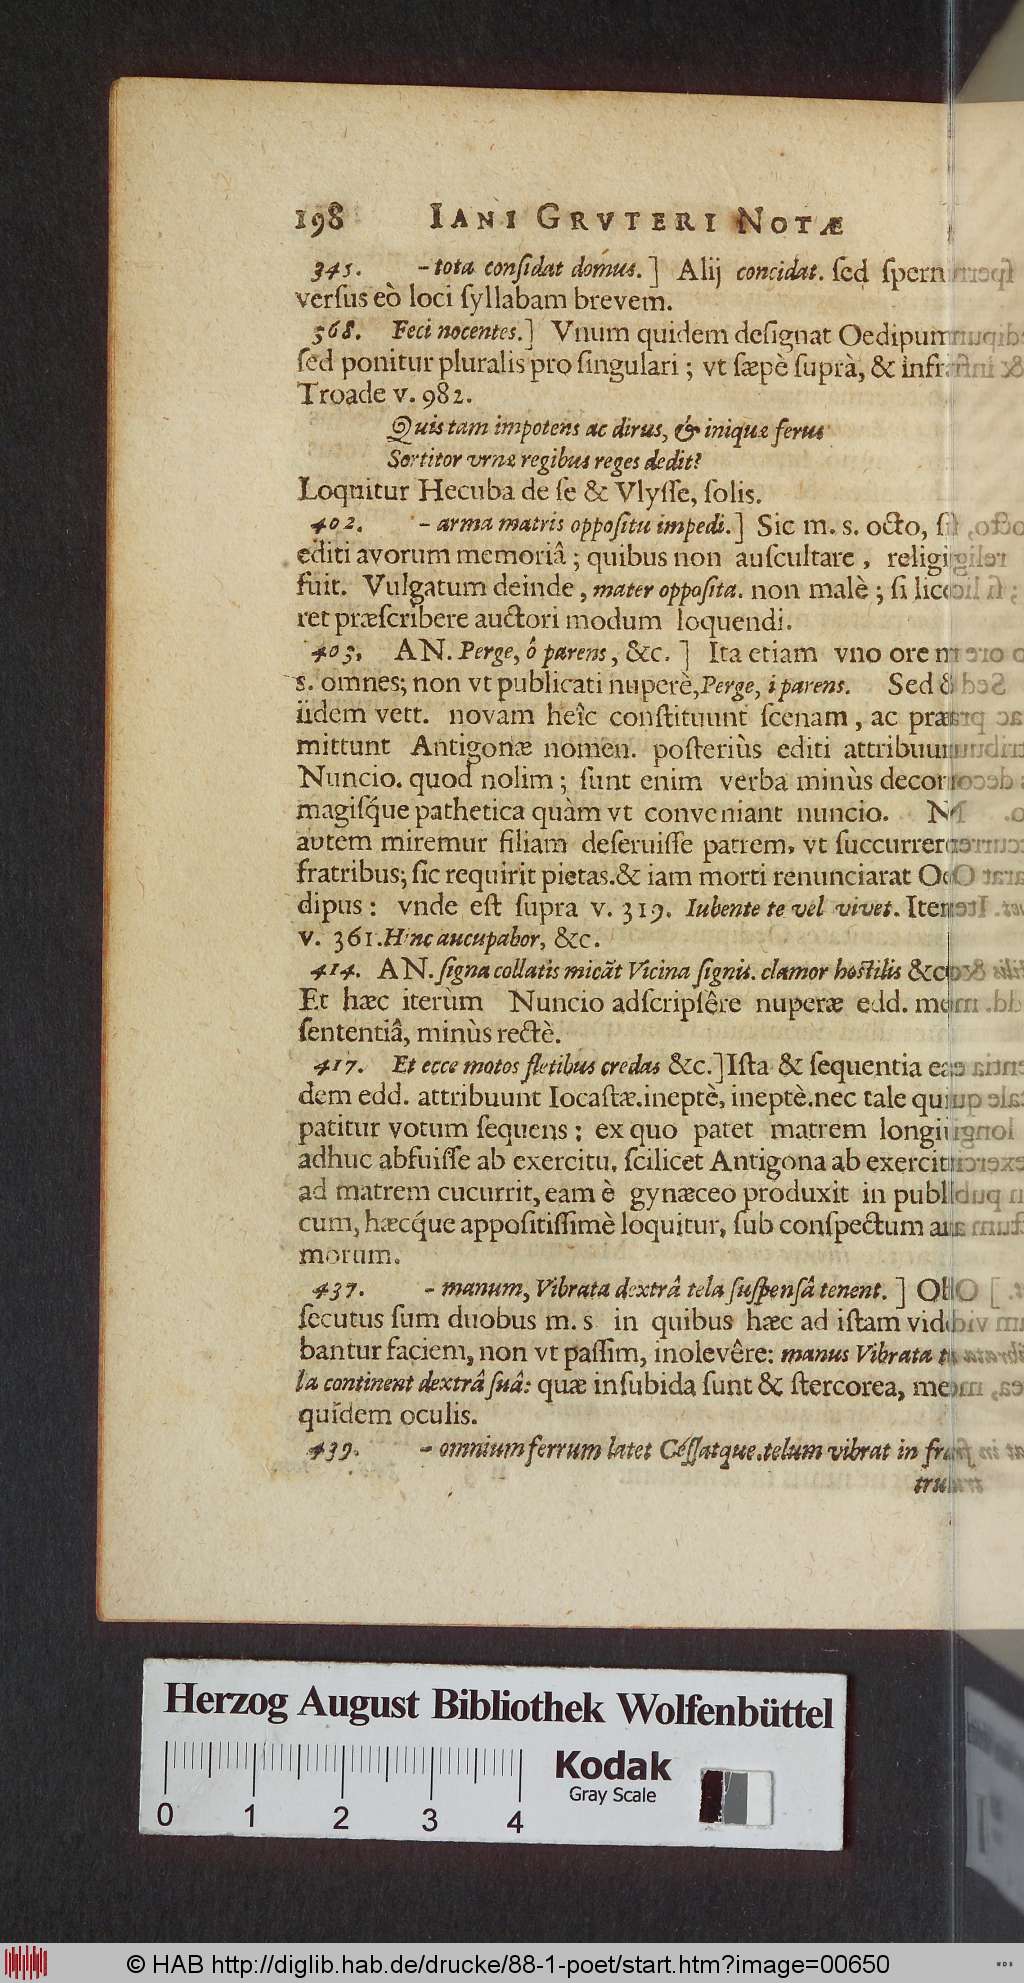 198 IANI GRVTERI NOTÆ
345. – tota conſidat domus.] Alij concidat. ſed ſpern
verſus eò loci ſyllabam brevem.
368. Feci nocentes.] Vnum quidem deſignat Oedipum
ſed ponitur pluralis pro ſingulari; vt ſæpè ſuprà, & infr
Troade v. 982.
Quis tam impotens ac dirus, & iniquæ ferus
Sortitor vrnæ regibus reges dedit?
Loquitur Hecuba de ſe & Vlyſſe, ſolis.
402. – arma matris oppoſitu impedi.] Sic m. s. octo, ſi
editi avorum memoriâ; quibus non auſcultare, religi
fuit. Vulgatum deinde, mater oppoſita. non malè; ſi lice
ret præſcribere auctori modum loquendi.
403. AN. Perge, ô parens, &c.] Ita etiam vno ore m
s. omnes; non vt publicati nuperè, Perge, i parens. Sed &
iidem vett. novam heîc conſtituunt ſcenam, ac præ
mittunt Antigonæ nomen. poſteriùs editi attribuun
Nuncio. quod nolim; ſunt enim verba minùs decor
magiſq́ue pathetica quàm vt conveniant nuncio. N
avtem miremur filiam deſeruiſſe patrem, vt ſuccurrer
fratribus; ſic requirit pietas. & iam morti renunciarat Oe
dipus: vnde eſt ſupra v. 319. Iubente te vel vivet. Item
v. 361. Hinc aucupabor, &c.
414. AN. ſigna collatis micãt Vicina ſignis. clamor hoſtilis &c
Et hæc iterùm Nuncio adſcripſêre nuperæ edd. me
ſententiâ, minùs rectè.
417. Et ecce motos fletibus credas &c.] Iſta & ſequentia ea
dem edd. attribuunt Iocaſtæ. ineptè, ineptè. nec tale qui
patitur votum ſequens: ex quo patet matrem longiu
adhuc abfuiſſe ab exercitu, ſcilicet Antigona ab exercit
ad matrem cucurrit, eam è gynæceo produxit in publi
cum, hæcq́ue appoſitiſſimè loquitur, ſub conſpectum ar
morum.
437. – manum, Vibrata dextrâ tela ſuſpenſâ tenent.] Ob
ſecutus ſum duobus m. s in quibus hæc ad iſtam vide
bantur faciem, non vt paſſim, inolevêre: manus Vibrata te
la continent dextrâ ſuâ: quæ inſubida ſunt & ſtercorea, me
quidem oculis.
439. – omnium ferrum latet Ceſſatque. telum vibrat in fra
tru
Herzog August Bibliothek Wolfenbüttel
Kodak
Gray Scale
0 1 2 3 4
© HAB http://diglib.hab.de/drucke/88-1-poet/start.htm?image=00650